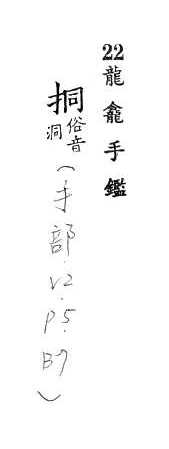 22龍龕手鑑
挏俗音洞(手部.V2.P5.B7)